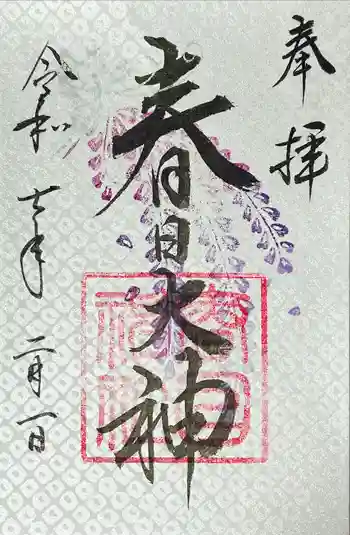 奉拝
春日大神
令和七年二月一日